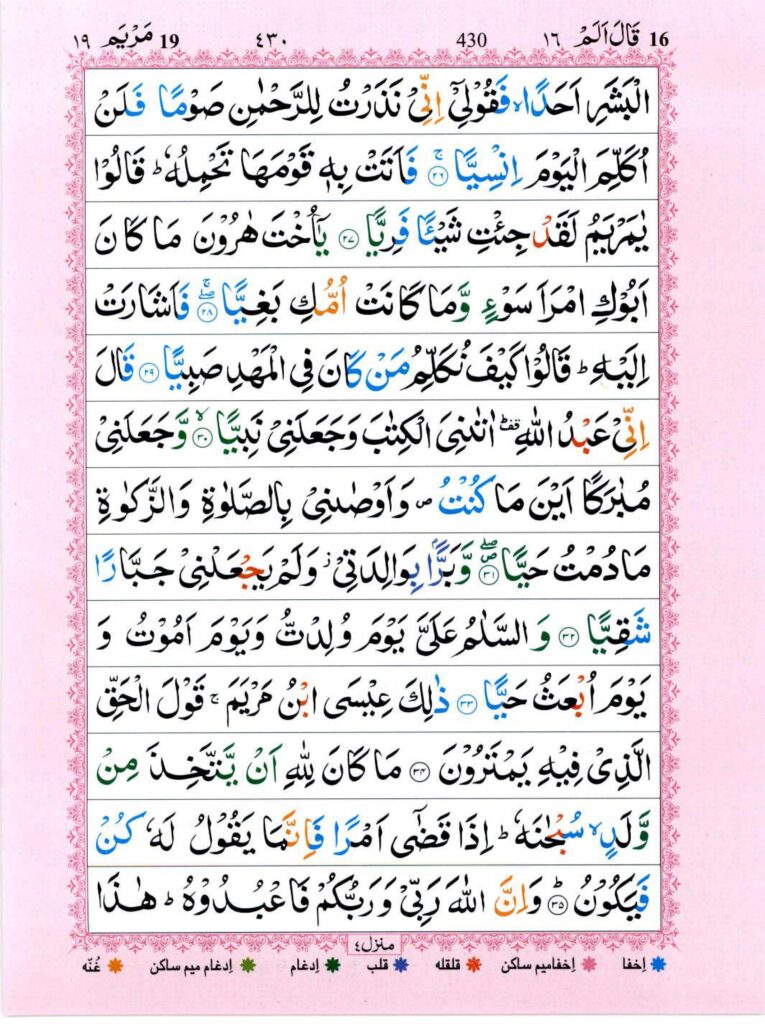 16 قَالَ اَلَمْ ١٦ 430 ٤٣٠ 19 مَرْيَم ١٩
الْبَشَرِ اَحَدًاۙ فَقُوْلِيْۤ اِنِّيْ نَذَرْتُ لِلرَّحْمٰنِ صَوْمًا فَلَنْ
اُكَلِّمَ الْيَوْمَ اِنْسِيًّا ۚ۝۲۶ فَاَتَتْ بِهٖ قَوْمَهَا تَحْمِلُهٗ ؕ قَالُوْا
يٰمَرْيَمُ لَقَدْ جِئْتِ شَيْـًٔا فَرِيًّا ۝۲۷ يٰۤاُخْتَ هٰرُوْنَ مَا كَانَ
اَبُوْكِ امْرَاَ سَوْءٍ وَّمَا كَانَتْ اُمُّكِ بَغِيًّا ۖۚ۝۲۸ فَاَشَارَتْ
اِلَيْهِ ؕ قَالُوْا كَيْفَ نُكَلِّمُ مَنْ كَانَ فِي الْمَهْدِ صَبِيًّا ۝۲۹ قَالَ
اِنِّيْ عَبْدُ اللّٰهِ ؕ۫ اٰتٰىنِيَ الْكِتٰبَ وَجَعَلَنِيْ نَبِيًّا ۙ۝۳۰ وَّجَعَلَنِيْ
مُبٰرَكًا اَيْنَ مَا كُنْتُ ۪ وَاَوْصٰىنِيْ بِالصَّلٰوةِ وَالزَّكٰوةِ
مَا دُمْتُ حَيًّا ۪ۖ۝۳۱ وَّبَرًّۢا بِوَالِدَتِيْ ؗ وَلَمْ يَجْعَلْنِيْ جَبَّارًا
شَقِيًّا ۝۳۲ وَ السَّلٰمُ عَلَيَّ يَوْمَ وُلِدْتُّ وَيَوْمَ اَمُوْتُ وَ
يَوْمَ اُبْعَثُ حَيًّا ۝۳۳ ذٰلِكَ عِيْسَى ابْنُ مَرْيَمَ ۚ قَوْلَ الْحَقِّ
الَّذِيْ فِيْهِ يَمْتَرُوْنَ ۝۳۴ مَا كَانَ لِلّٰهِ اَنْ يَّتَّخِذَ مِنْ
وَّلَدٍ ۙ سُبْحٰنَهٗ ؕ اِذَا قَضٰۤى اَمْرًا فَاِنَّمَا يَقُوْلُ لَهٗ كُنْ
فَيَكُوْنُ ؕ۝۳۵ وَاِنَّ اللّٰهَ رَبِّيْ وَرَبُّكُمْ فَاعْبُدُوْهُ ؕ هٰذَا
منزل٤
اِخفا اِخفامیم ساکن قلقله قلب اِدغام اِدغام میم ساکن غُنّه